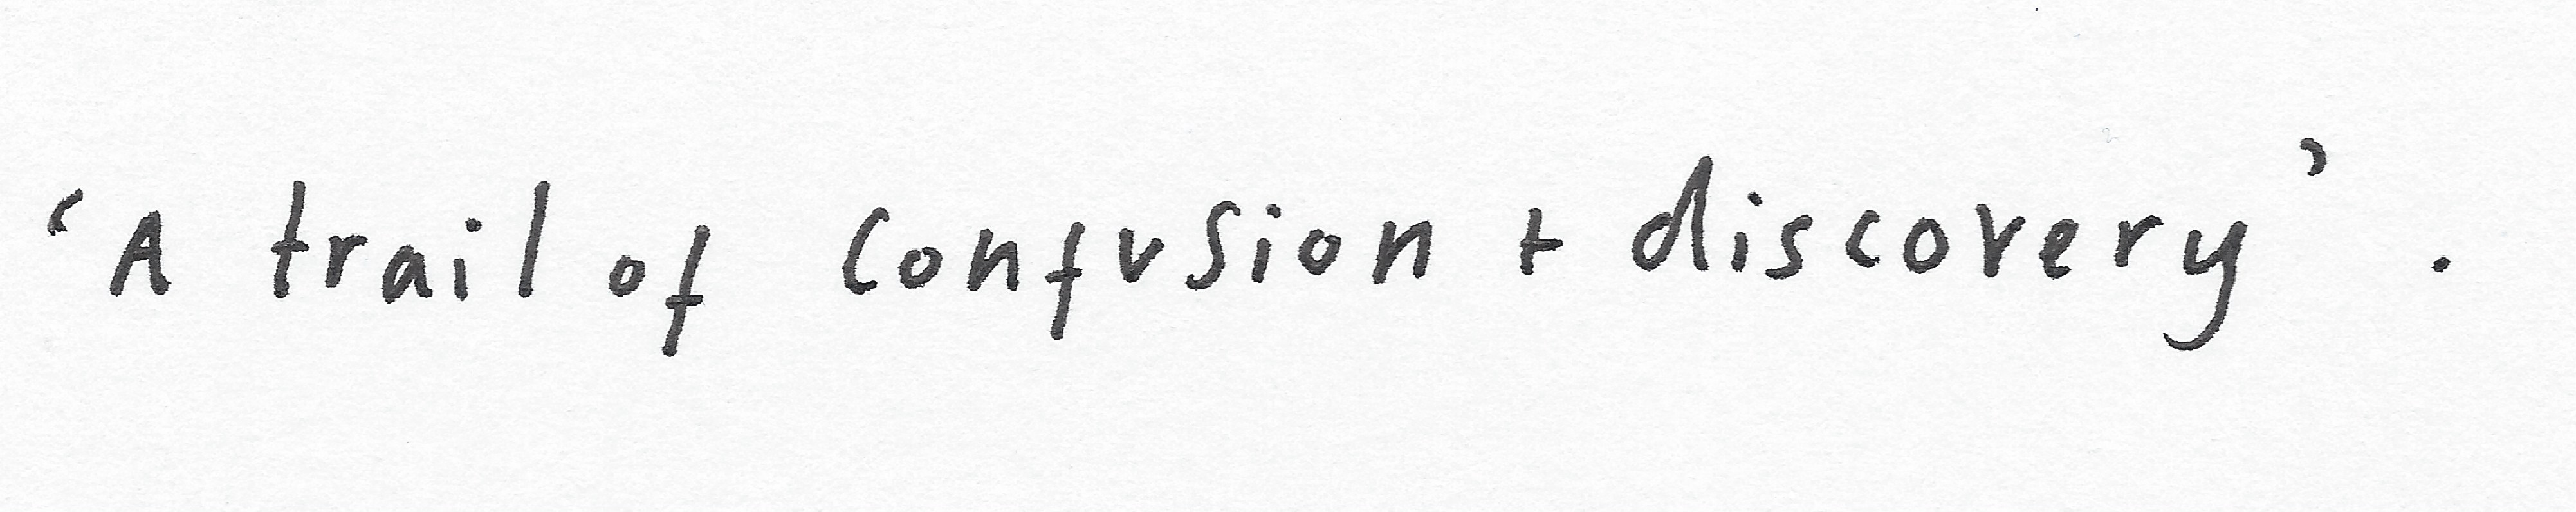 ‘A trail of confusion + discovery’.